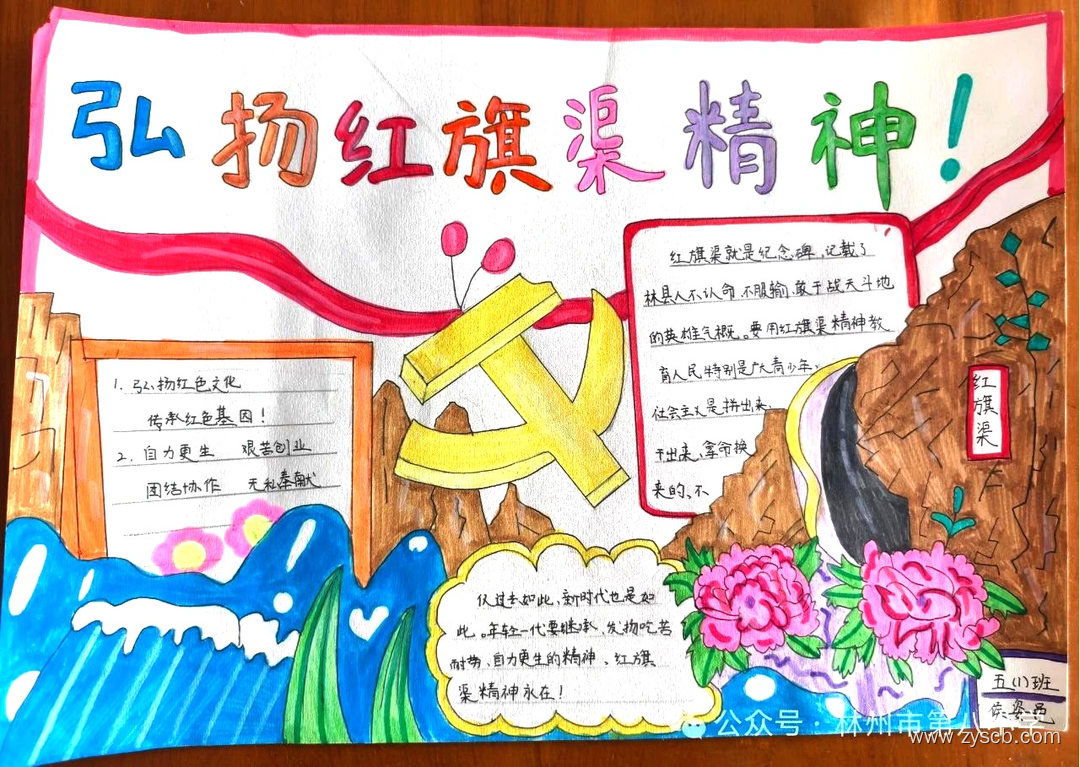 弘扬红旗渠精神!
1. 弘扬红色文化
传承红色基因!
2. 自力更生 艰苦创业
团结协作 无私奉献
红旗渠就是纪念碑,记载了
林县人不认命,不服输,敢于战天斗地
的英雄气概。要用红旗渠精神教
育人民特别是广大青少年,
社会主义是拼出来、
干出来、拿命换
来的,不
仅过去如此,新时代也是如
此。年轻一代要继承、发扬吃苦
耐劳、自力更生的精神。红旗
渠精神永在!
红
旗
渠
五(1)班
公众号·林州市第八小学
www.zyscb.com